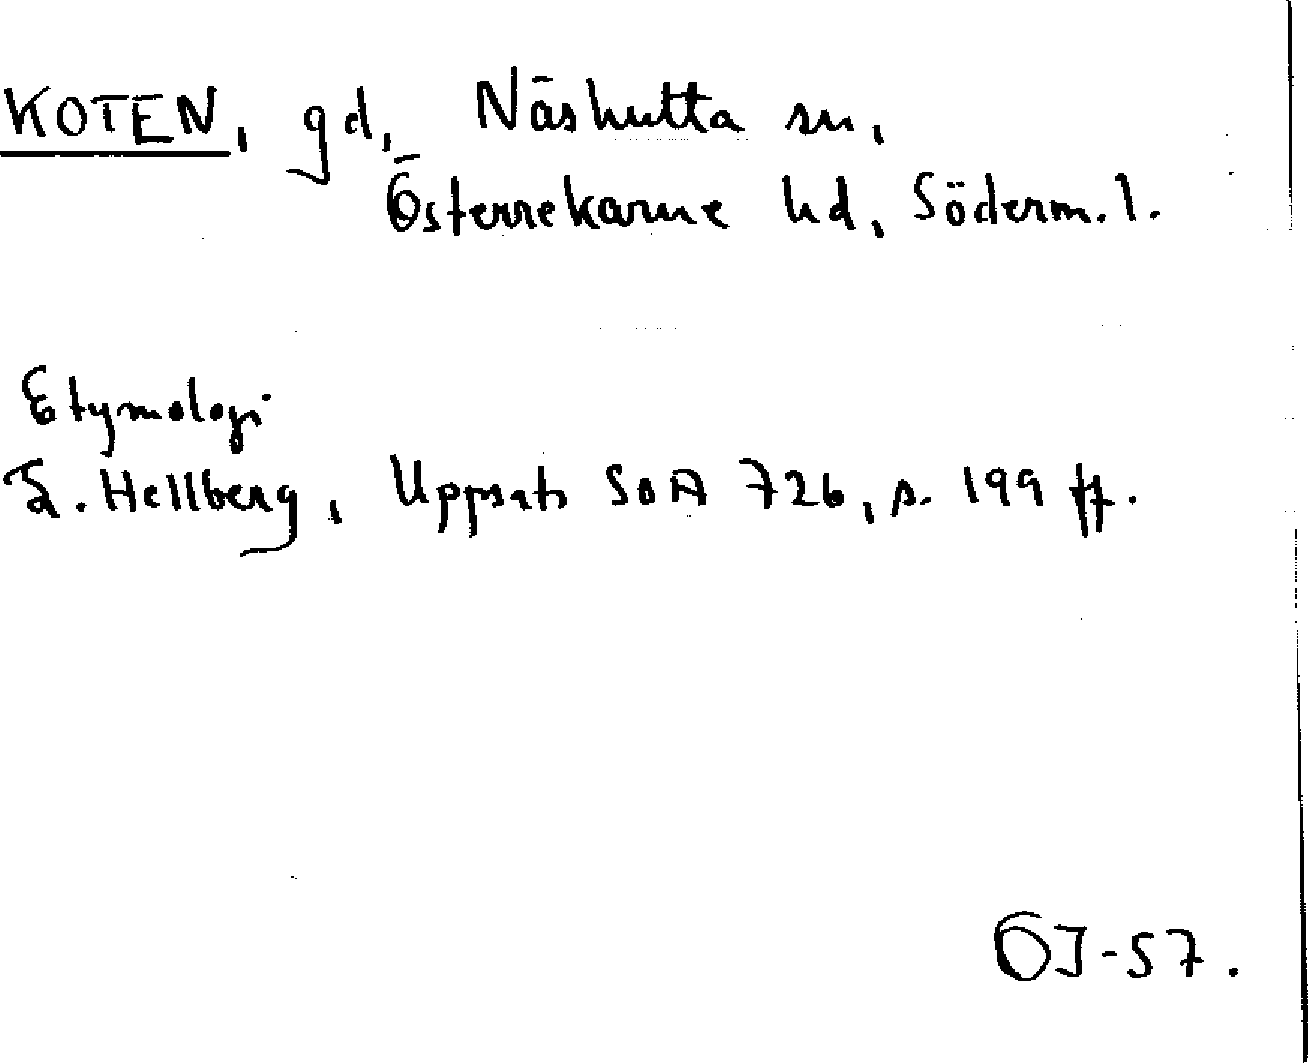 KOTEN, gd, Näshulta sn,
Österrekarne hd, Söderm. l.
Etymologi
L. Hellberg, Uppsats SOA 726, s. 199 ff.
OJ-57.